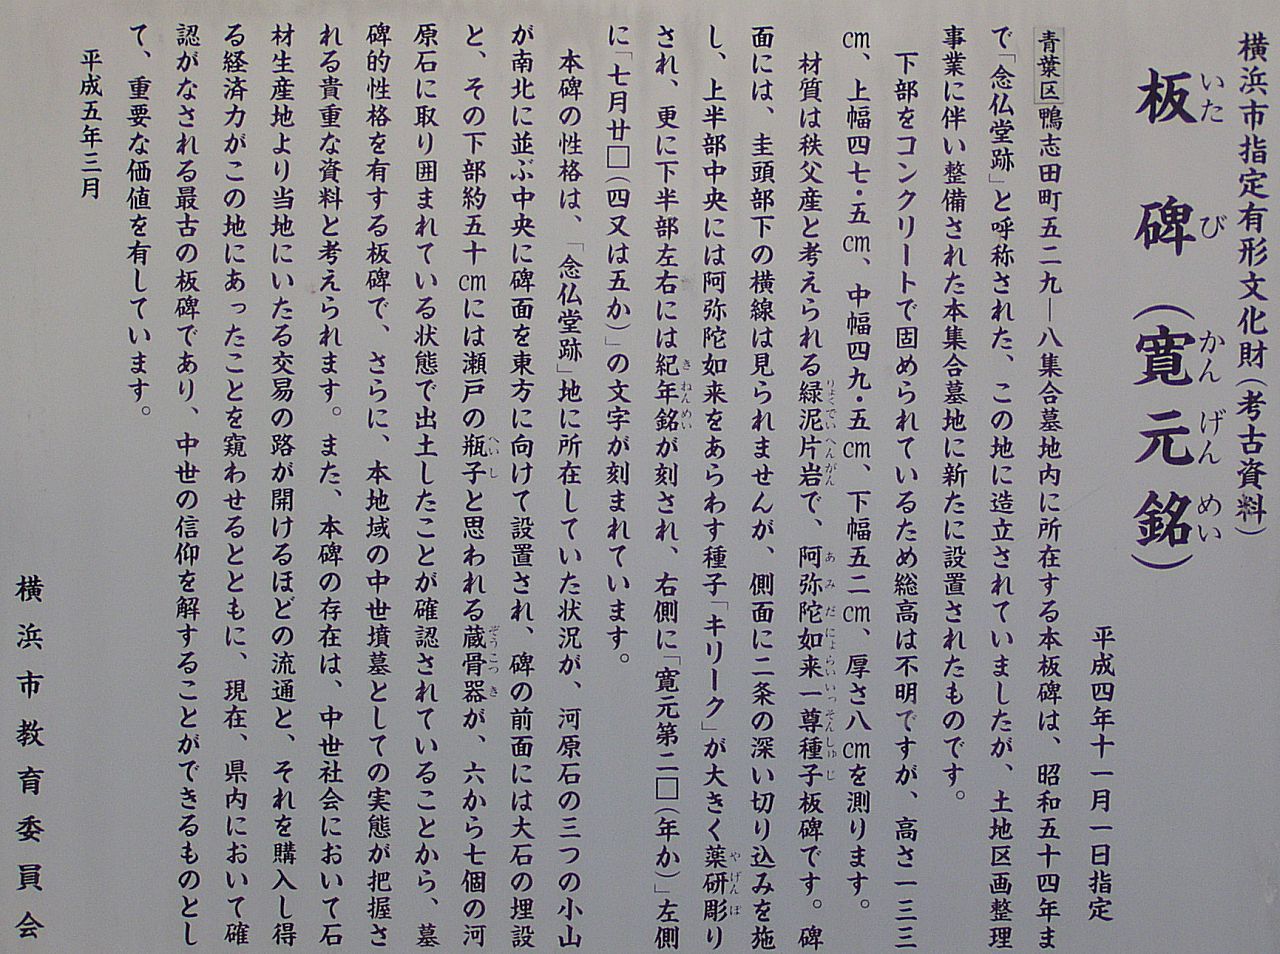 横浜市指定有形文化財(考古資料)
板碑(寛元銘)
いたび かんげんめい
平成四年十一月一日指定
青葉区鴨志田町五二九―八集合墓地内に所在する本板碑は、昭和五十四年ま
で「念仏堂跡」と呼称された、この地に造立されていましたが、土地区画整理
事業に伴い整備された本集合墓地に新たに設置されたものです。
下部をコンクリートで固められているため総高は不明ですが、高さ一三三
㎝、上幅四七・五㎝、中幅四九・五㎝、下幅五二㎝、厚さ八㎝を測ります。
材質は秩父産と考えられる緑泥片岩で、阿弥陀如来一尊種子板碑です。碑
りょくでいへんがん あみだにょらいいっそんしゅじ
面には、圭頭部下の横線は見られませんが、側面に二条の深い切り込みを施
し、上半部中央には阿弥陀如来をあらわす種子「キリーク」が大きく薬研彫り
やげんぼ
され、更に下半部左右には紀年銘が刻され、右側に「寛元第二□(年か)」左側
きねんめい
に「七月廿□(四又は五か)」の文字が刻まれています。
本碑の性格は、「念仏堂跡」地に所在していた状況が、河原石の三つの小山
が南北に並ぶ中央に碑面を東方に向けて設置され、碑の前面には大石の埋設
と、その下部約五十㎝には瀬戸の瓶子と思われる蔵骨器が、六から七個の河
へいし ぞうこつき
原石に取り囲まれている状態で出土したことが確認されていることから、墓
碑的性格を有する板碑で、さらに、本地域の中世墳墓としての実態が把握さ
れる貴重な資料と考えられます。また、本碑の存在は、中世社会において石
材生産地より当地にいたる交易の路が開けるほどの流通と、それを購入し得
る経済力がこの地にあったことを窺わせるとともに、現在、県内において確
認がなされる最古の板碑であり、中世の信仰を解することができるものとし
て、重要な価値を有しています。
平成五年三月
横浜市教育委員会